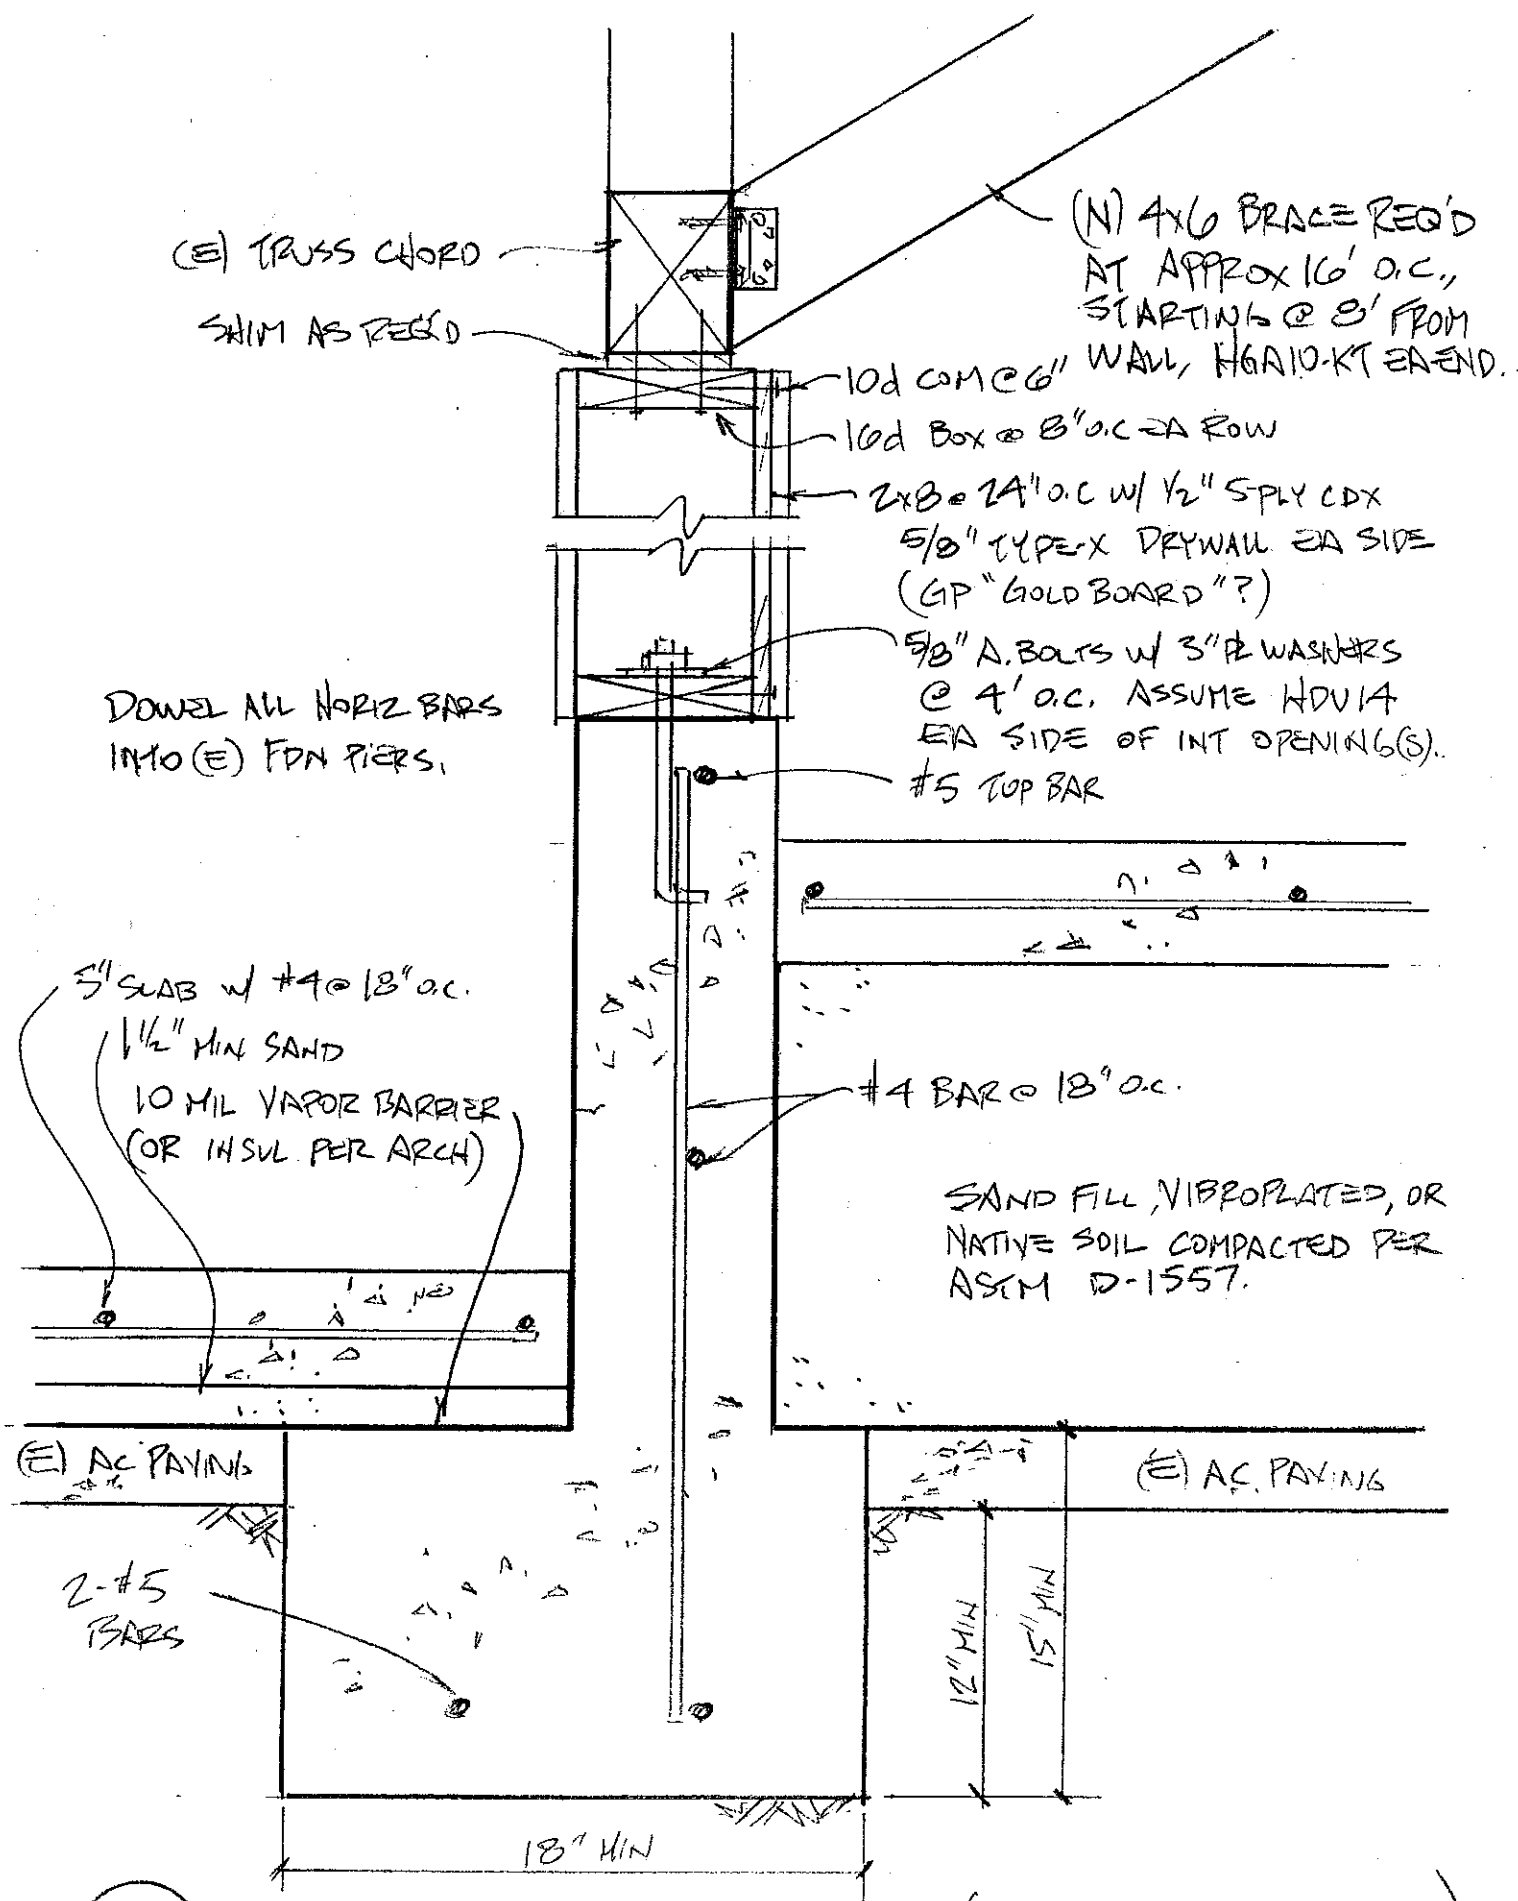 (E) TRUSS CHORD
SHIM AS REQ'D
(N) 4x6 BRACE REQ'D
AT APPROX 16' O.C.,
STARTING @ 8' FROM
WALL, HGA10-KT EA END.
10d COM @ 6"
16d BOX @ 8" O.C EA ROW
2x8 @ 24" O.C W/ 1/2" 5-PLY CDX
5/8" TYPE-X DRYWALL EA SIDE
(GP "GOLD BOARD"?)
5/8" A.BOLTS W/ 3" PL WASHERS
@ 4' O.C. ASSUME HDU14
EA SIDE OF INT OPENING(S).
#5 TOP BAR
DOWEL ALL HORIZ BARS
INTO (E) FDN PIERS.
5" SLAB W/ #4 @ 18" O.C.
1 1/2" MIN SAND
10 MIL VAPOR BARRIER
(OR INSUL PER ARCH)
#4 BAR @ 18" O.C.
SAND FILL, VIBROPLATED, OR
NATIVE SOIL COMPACTED PER
ASTM D-1557.
(E) AC PAVING
(E) A.C. PAVING
2-#5
BARS
12" MIN
15" MIN
18" MIN